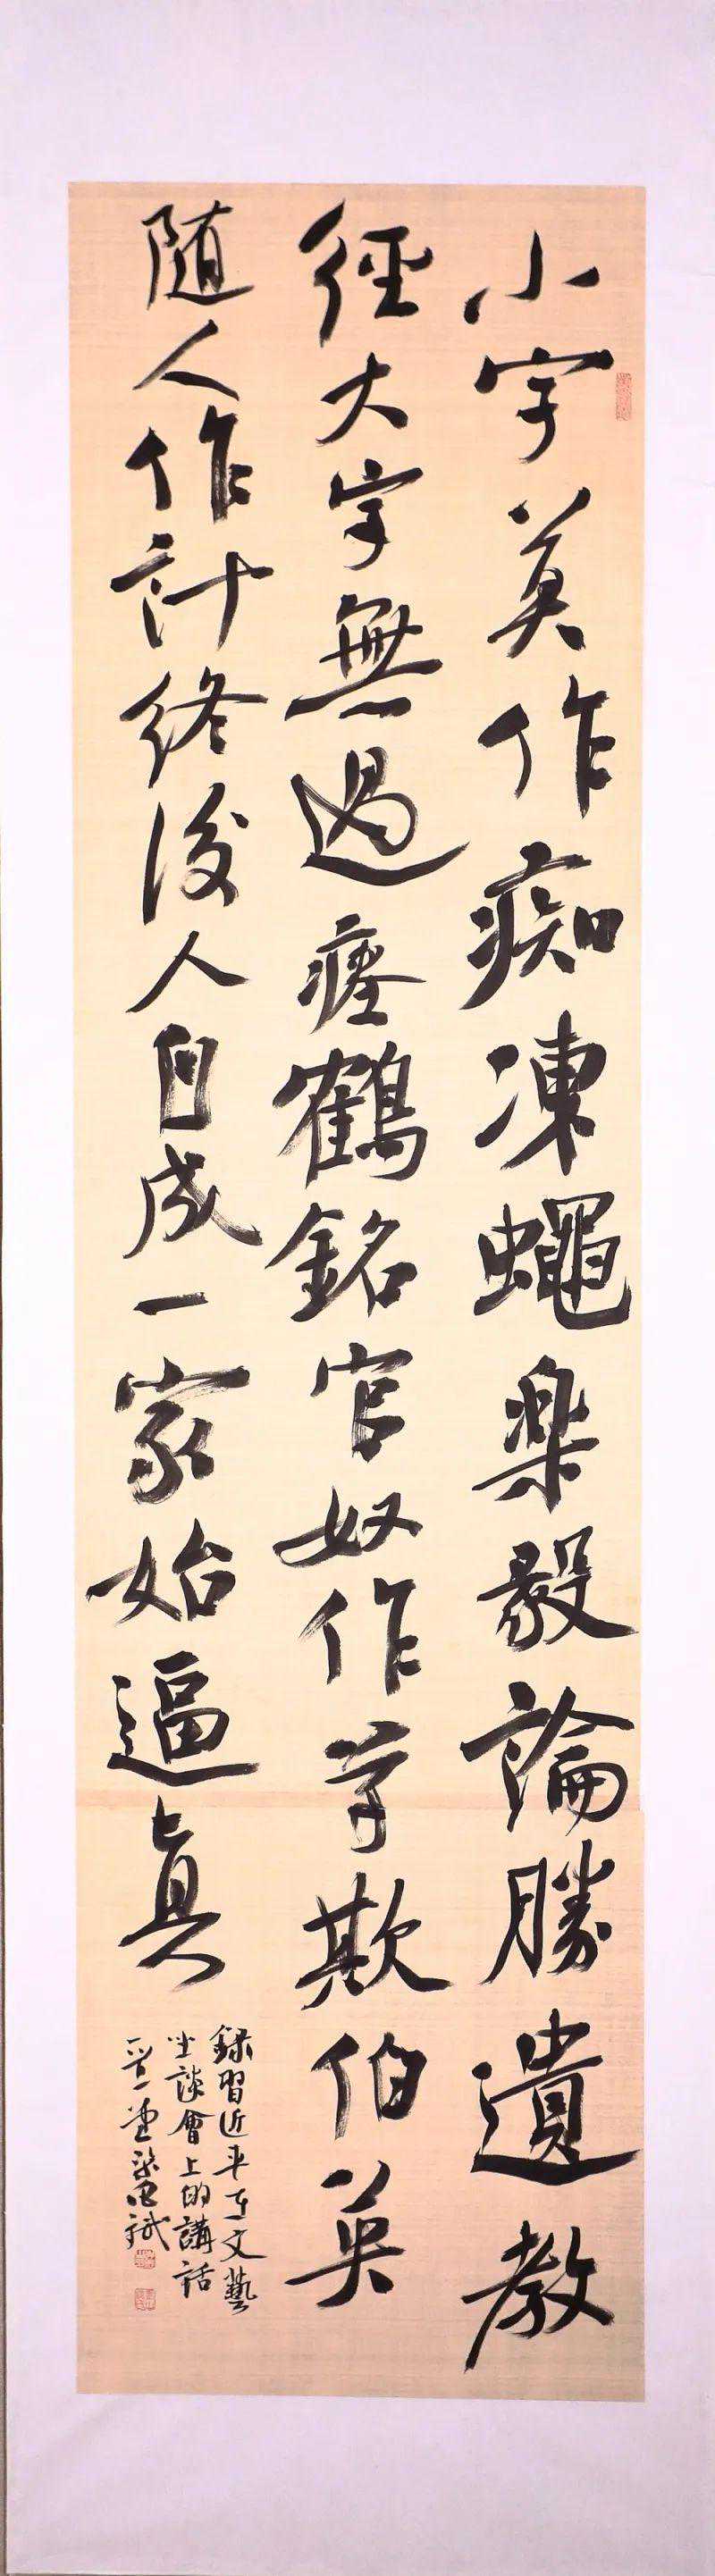 小字莫作痴凍蠅楽毅論勝遺教
徑大字無過瘞鶴銘官奴作草欺伯英
随人作計終後人自成一家始逼真
録習近平在文藝
坐談會上的講話